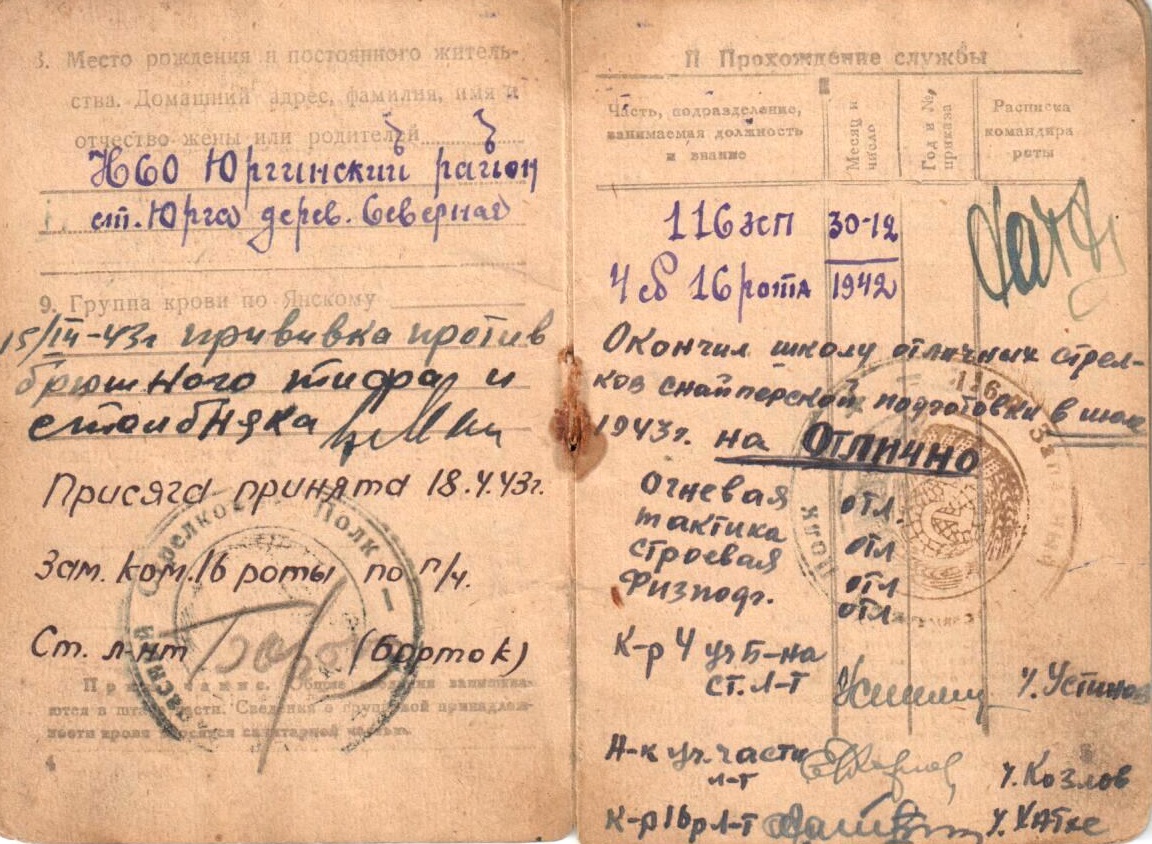 8. Место рождения и постоянного житель-
ства. Домашний адрес, фамилия, имя и
отчество жены или родителей
НСО Юргинский район
ст. Юрга дерев. Северная
9. Группа крови по Янскому
15/IV-43г прививка против
брюшного тифа и
столбняка
Присяга принята 18.4.43г.
Зам. ком. 16 роты по п/ч.
Ст. л-нт (Барток)
Примечание. Общие сведения записыва-
ются в штабе части. Сведения о групповой принадлеж-
ности крови вносятся санитарной частью.
4
Стрелковый Полк
II Прохождение службы
Часть, подразделение,
занимаемая должность
и звание
Месяц и
число
Год и №
приказа
Расписка
командира
роты
116 зсп 30-12
4 сб 16 рота 1942
Окончил школу отличных стрел-
ков снайперской подготовки в мае
1943г. на Отлично
Огневая отл.
тактика отл
строевая отл
Физподг. отл
К-р 4 уч Б-на
ст. л-т /. Устинов
Н-к уч. части
л-т /. Козлов
К-р 16 р л-т
116
Запасный
Полк